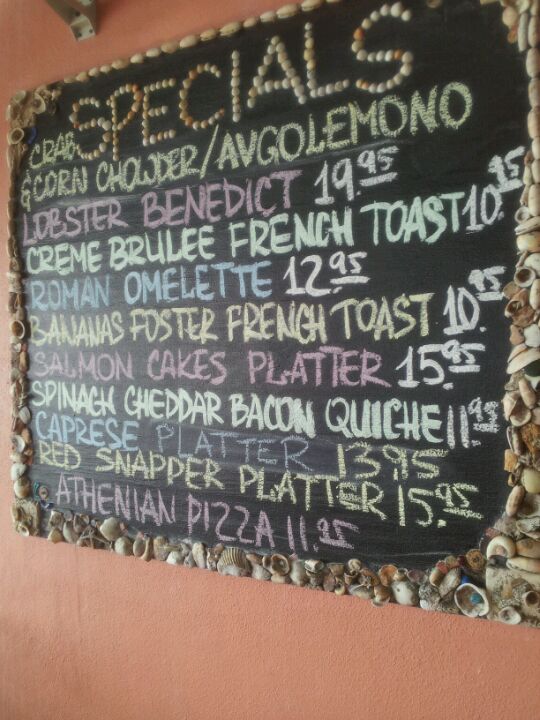 SPECIALS
CRAB
& CORN CHOWDER/AVGOLEMONO
LOBSTER BENEDICT 19.95
CREME BRULEE FRENCH TOAST 10.95
ROMAN OMELETTE 12.95
BANANAS FOSTER FRENCH TOAST 10.95
SALMON CAKES PLATTER 15.95
SPINACH CHEDDAR BACON QUICHE 11.95
CAPRESE PLATTER 13.95
RED SNAPPER PLATTER 15.95
ATHENIAN PIZZA 11.95